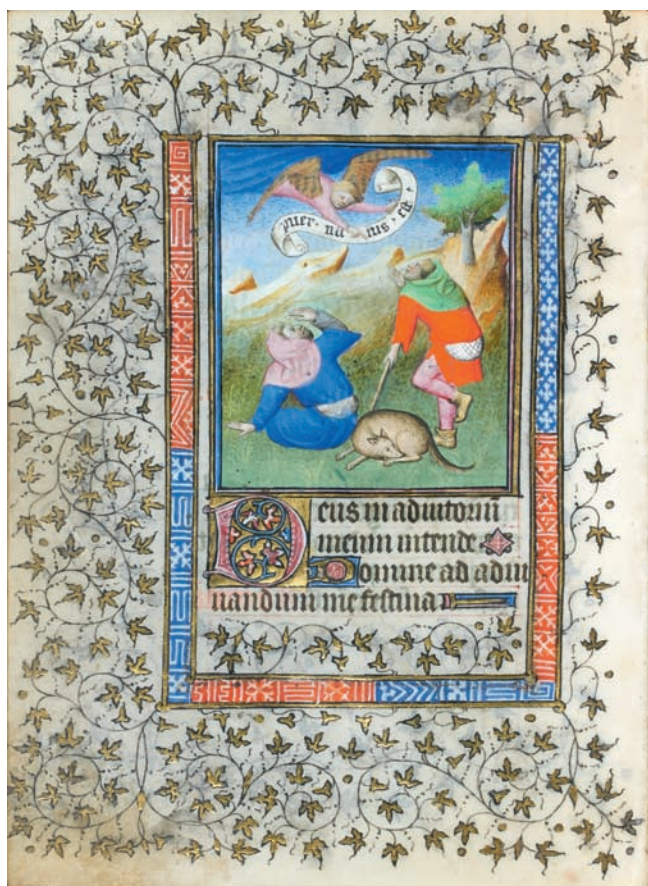 puer · na tus · est ·
Deus in adiutoriū
meum intende
Domine ad adiu
uandum me festina